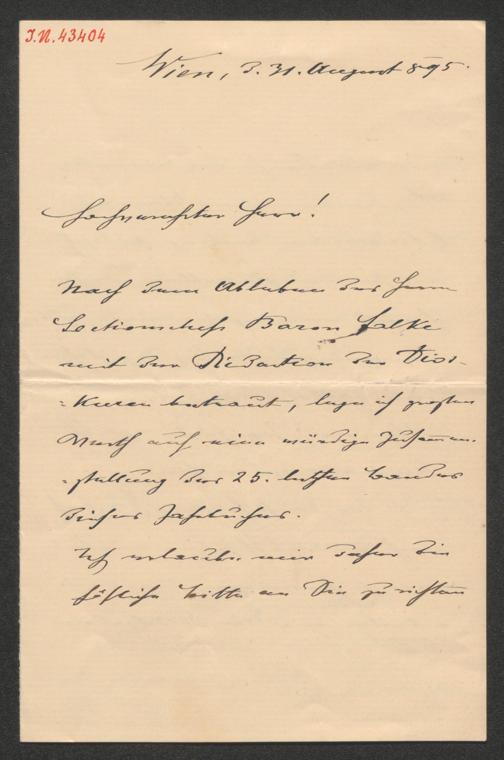 I.N. 43404
Wien, d. 31. August 895.
Hochverehrter Herr!
Nach dem Ableben des Herrn
Sectionschefs Baron Falke
mit der Redaction der Dios-
=kuren betraut, lege ich großen
Werth auf eine würdige Zusammen-
=stellung des 25. letzten Bandes
dieses Jahrbuches.
Ich erlaube mir daher die
höfliche Bitte an Sie zu richten